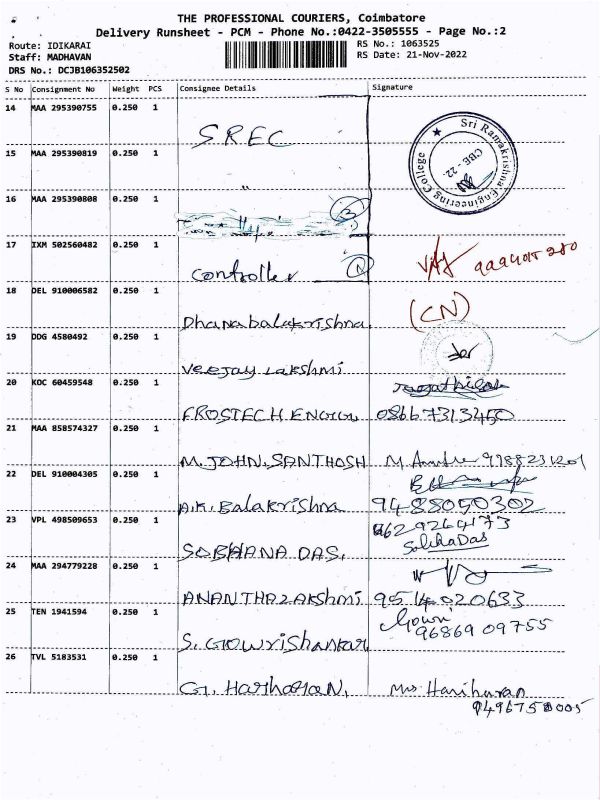 THE PROFESSIONAL COURIERS, Coimbatore
Delivery Runsheet - PCM - Phone No.:0422-3505555 - Page No.:2
Route: IDIKARAI
RS No.: 1063525
Staff: MADHAVAN
RS Date: 21-Nov-2022
DRS No.: DCJB106352502
S No Consignment No Weight PCS Consignee Details Signature
14 MAA 295390755 0.250 1
SREC
Sri Ramakrishna Engineering College
CBE - 22.
15 MAA 295390819 0.250 1
"
16 MAA 295390808 0.250 1
17 IXM 502560482 0.250 1
Controller
18 DEL 910006582 0.250 1
Dhanabalakrishna. (CN)
19 DDG 4580492 0.250 1
Veejay Lakshmi
20 KOC 60459548 0.250 1
FROSTECH 08667313450
21 MAA 858574327 0.250 1
M. JOHN. SANTHOSH M. 9788231201
22 DEL 910004305 0.250 1
A.K. Balakrishna 9488050302
23 VPL 498509653 0.250 1
9629264173
SOBHANA DAS.
24 MAA 294779228 0.250 1
ANANTHALAKshmi 9514020633
25 TEN 1941594 0.250 1
Gowri
9686909755
S. GOWrishankar
26 TVL 5183531 0.250 1
G. HARIHARAN. Mrs Hariharan